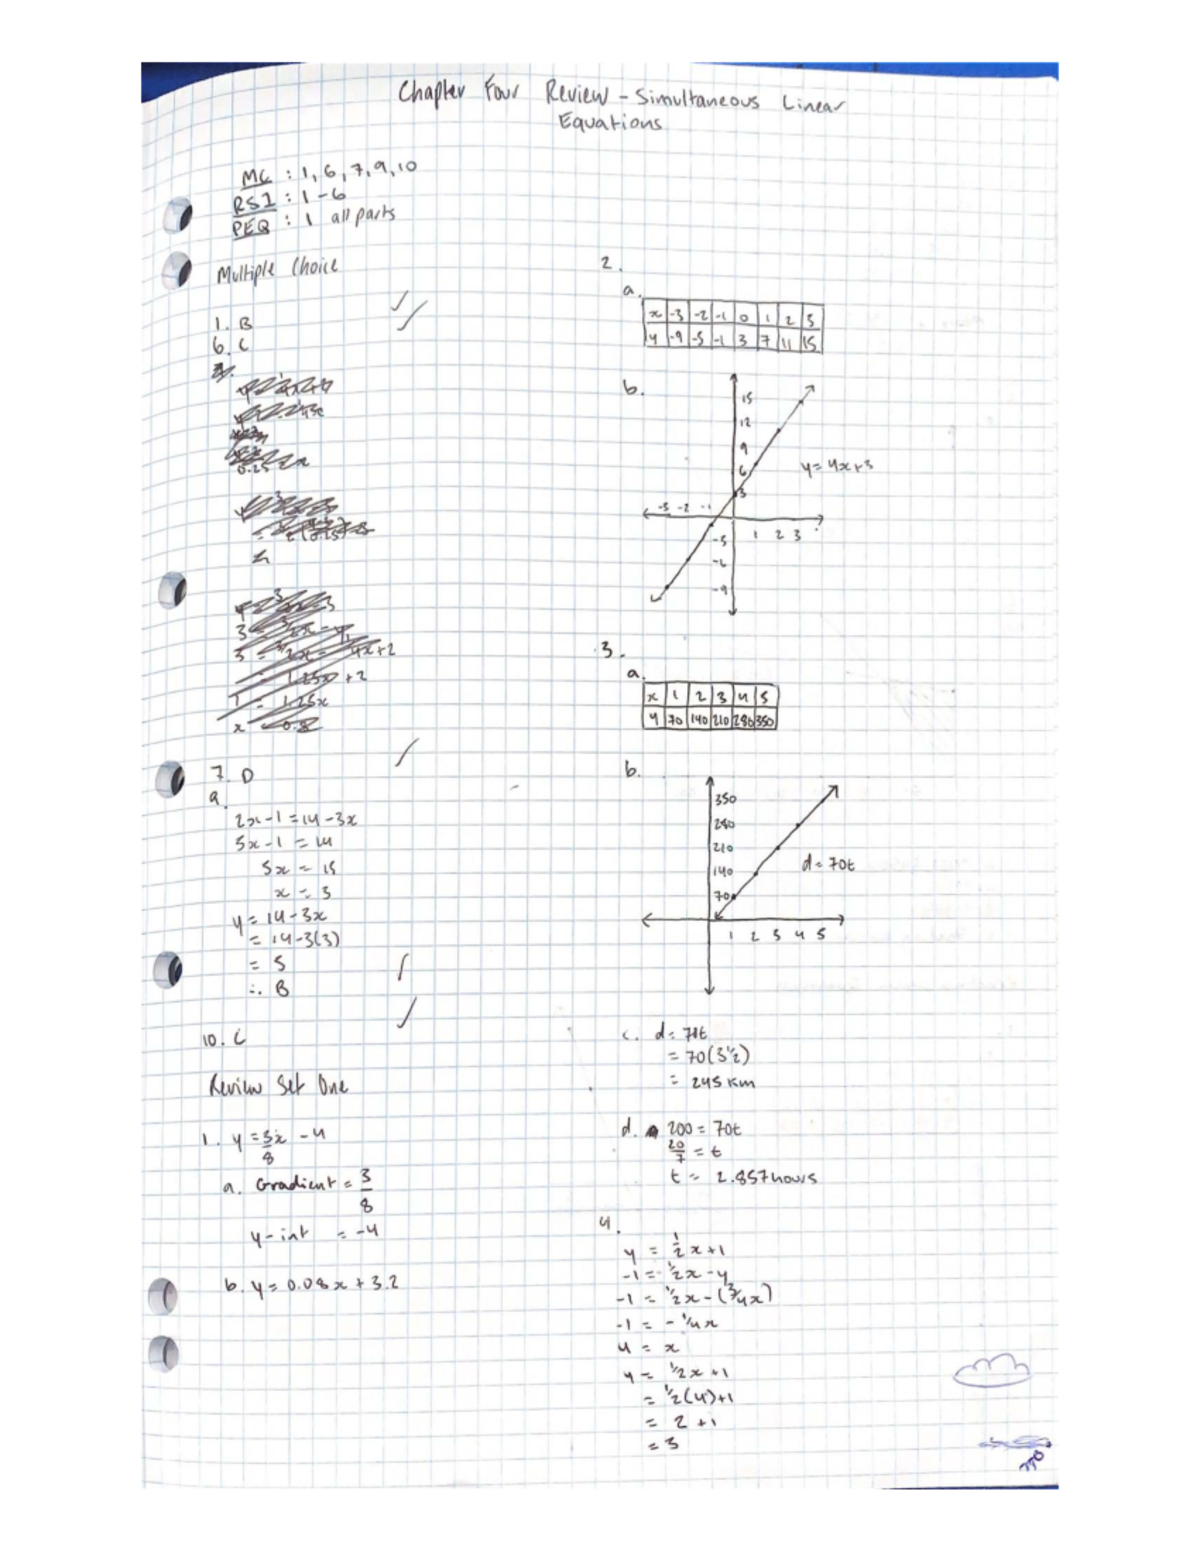 Chapter Four Review - Simultaneous Linear
Equations
MC : 1, 6, 7, 9, 10
RS1 : 1 - 6
PEQ : 1 all parts
Multiple Choice
1. B
6. C
7. D
9.
2x-1 = 14-3x
5x-1 = 14
5x = 15
x = 3
y = 14-3x
= 14-3(3)
= 5
∴ B
10. C
Review Set One
1. y = 3x/8 - 4
a. Gradient = 3/8
y-int = -4
b. y = 0.08x + 3.2
2.
a.
x -3 -2 -1 0 1 2 3
y -9 -5 -1 3 7 11 15
b.
15
12
9
6
3
-3 -2 -1
1 2 3
-3
-6
-9
y = 4x+3
3.
a.
x 1 2 3 4 5
y 70 140 210 280 350
b.
350
280
210
140
70
1 2 3 4 5
d = 70t
c. d = 70t
= 70(3½)
= 245 km
d. 200 = 70t
20/7 = t
t = 2.857 hours
4.
y = ½x+1
-1 = ½x - y
-1 = ½x - (¾x)
-1 = -¼x
4 = x
y = ½x +1
= ½(4)+1
= 2 +1
= 3